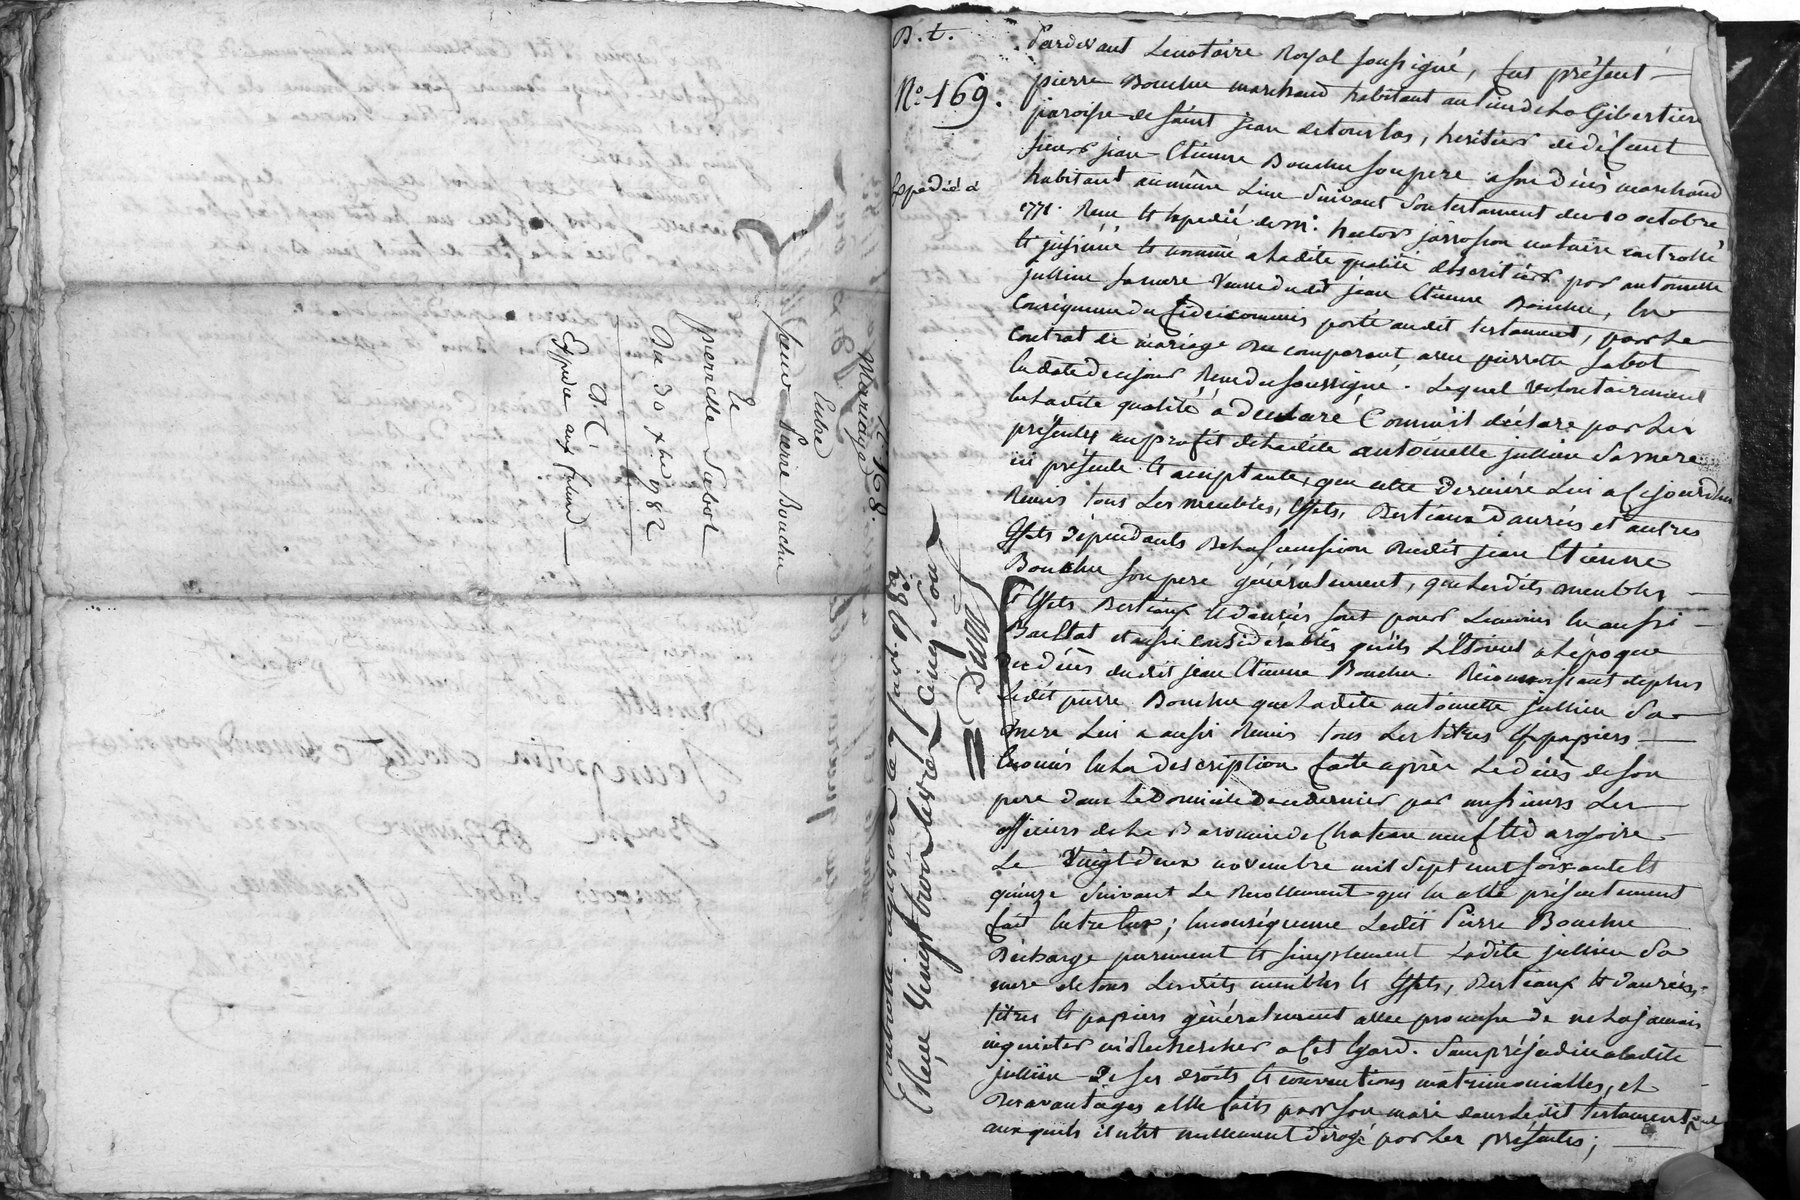 N.° 168.
Mariage
Entre
sieur Pierre Bouchu
Et
pierrette Sabot
Du 30 xbre 1782
B.t.
Expedié aux futurs
B.t.
N.° 169.
Expedié
Pardevant Le notaire Royal soussigné, fut présent
pierre Bouchu marchand habitant au lieu de La Gibertiere
paroisse de saint jean de touslas, heritier de défunt
sieur jean Etienne Bouchu son pere a son décès marchand
habitant au même Lieu Suivant Son testament du 10 octobre
1771. Recu et Expedié de m.e hector jarrosson notaire controllé
et jnsinué et nommé a Ladite qualité d'heritier par antoinette
jullien Sa mere Veuve dudit jean Etienne Bouchu, En
Consequence du fideicommis porté audit testament, par Le
Contrat de mariage du comparant avec pierrette Sabot
En date de ce jour Recu du soussigné. Lequel volontairement
En Ladite qualité a declaré Comme il déclare par Les
présentes au profit de Ladite antoinette jullien Sa mere
ici présente et acceptante, que cette Derniére Lui a Cejourdhui
Remis tous Les meubles, Effets, Bestiaux Danrées et autres
Effets dépendants De La Succession Dudit jean Etienne
Bouchu son pere généralement, que Lesdits meubles
et Effets Bestiaux et danrées sont pour Lemoins En aussi
Bon Etat et aussi considérables qu'ils L'Etoient a Lépoque
Du décès dudit jean Etienne Bouchu. Réconnoissant deplus
Ledit pierre Bouchu que Ladite antoinette jullien Sa
mere Lui a aussi Remis tous Les titres Et papiers
Enoncés En La description faite après Le décès de son
pere dans Le Domicile De ce dernier par messieurs Les
officiers de La Baronnie de Chateau neuf et dargoire
Le Vingt Deux novembre mil Sept cent soixante Et
quinze Suivant Le Recollement qui En a Eté présentement
fait Entre Eux ; En conséquence Ledit Pierre Bouchu
Décharge purement et simplement Ladite jullien Sa
mere de tous Lesdits meubles et Effets, Bestiaux et danrées,
titres et papiers généralement avec promesse de ne La jamais
inquieter ni Rechercher a Cet Egard. Sans préjudice a Ladite
jullien De Ses droits et conventions matrimonialles, et
Des avantages a Elle faits par Son mari dans Ledit testament
aux quels il n'Est nullement Dérogé par Les présentes ;
Controllé a givors le 7 janv. 1783
Reçu Vingt trois livres Cinq Sous